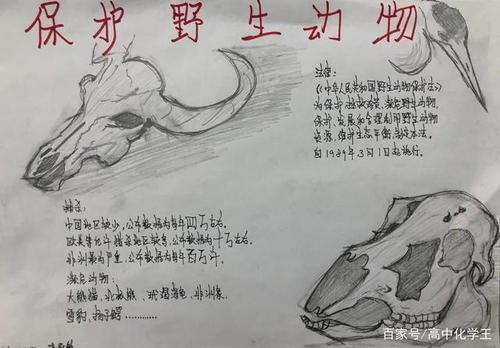 保护野生动物
法律:
《中华人民共和国野生动物保护法》
为保护、拯救珍贵、濒危野生动物,
保护、发展和合理利用野生动物
资源,维护生态平衡,制定本法。
自1989年3月1起施行。
猎杀:
中国地区较少,公布数据为每年四万左右。
欧美等北斗猎杀地区较多,公布数据为十万左右。
非洲最为严重,公布数据为每年百万斗。
濒危动物:
大熊猫、北极熊、玳瑁海龟、非洲象、
雪豹、扬子鳄…………
百家号/高中化学王